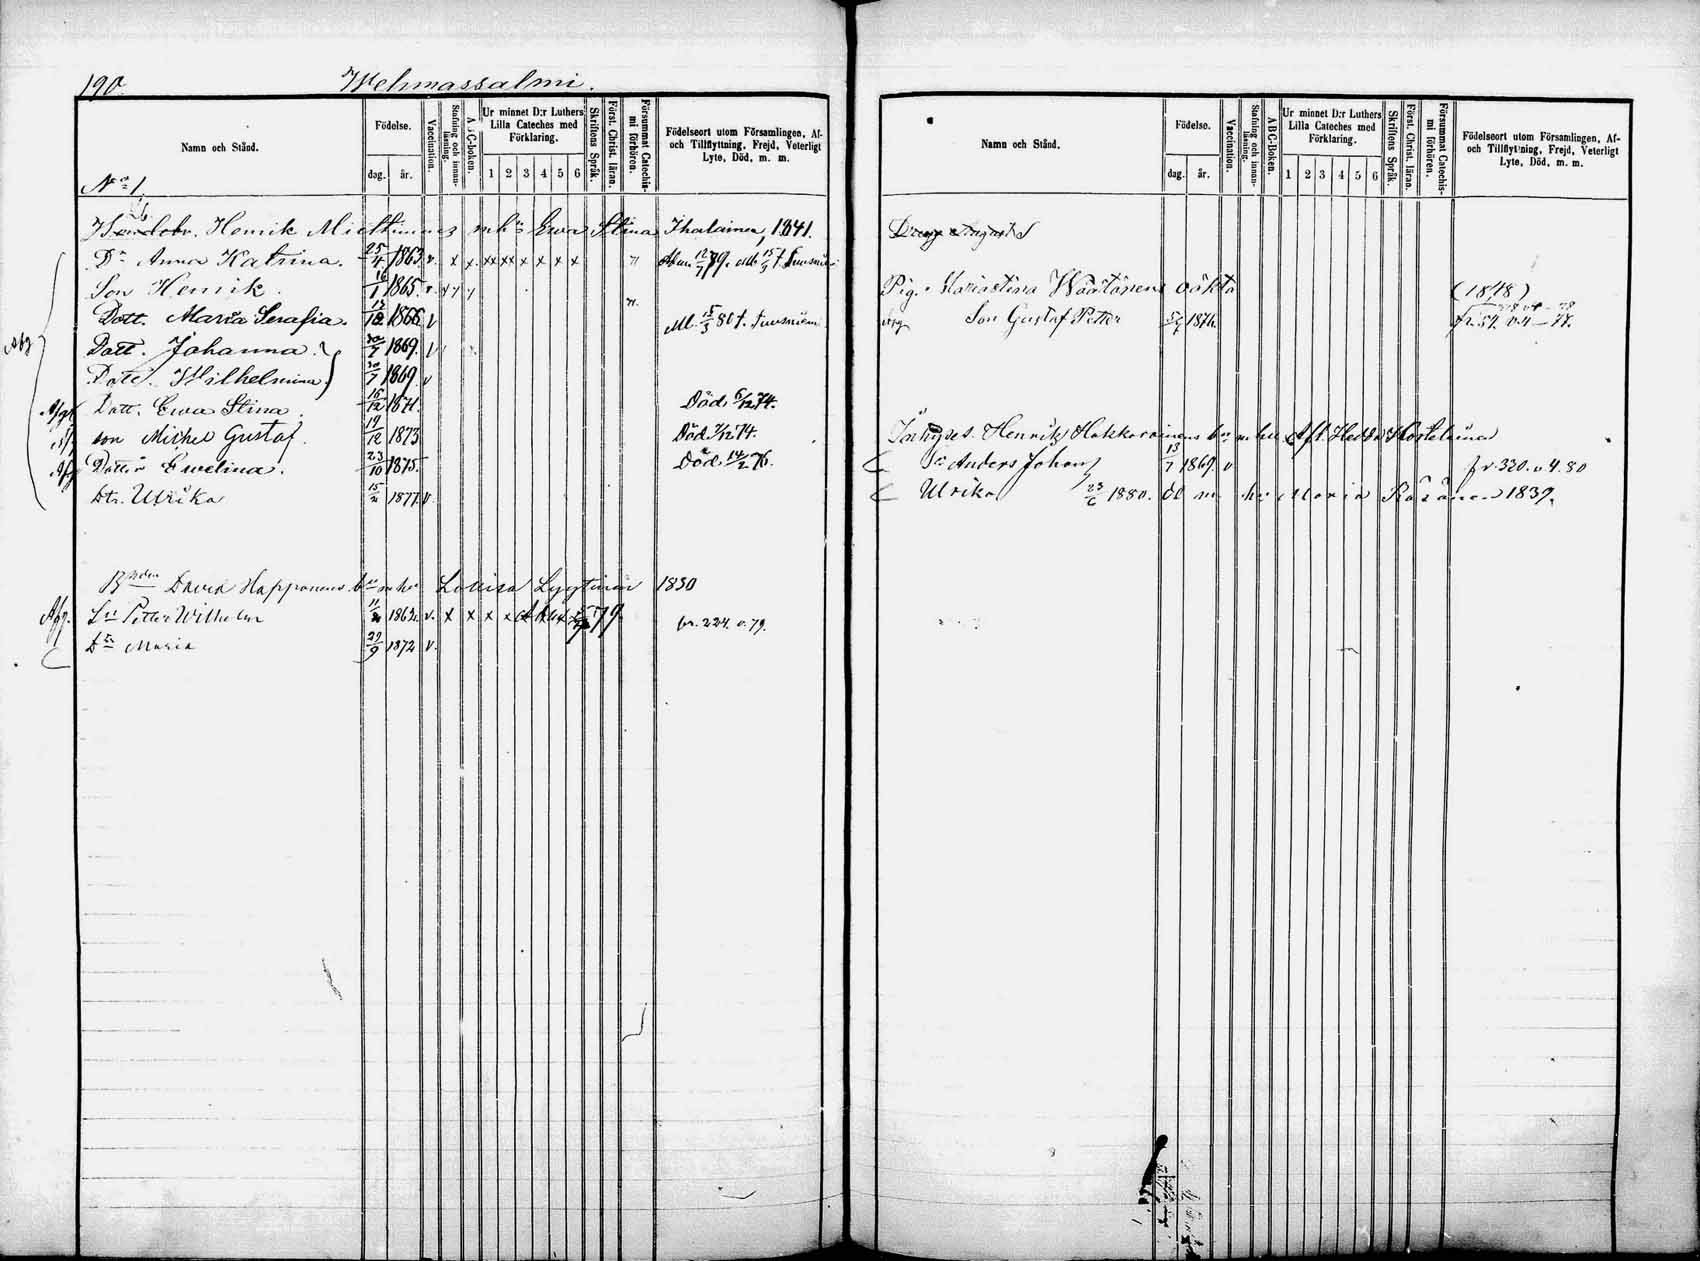 190.
Wehmassalmi.
Namn och Stånd.
Födelse.
dag.
år.
Vaccination.
Stafning och innan-läsning.
A B C-boken.
Ur minnet D:r Luthers
Lilla Cateches med
Förklaring.
1 2 3 4 5 6
Skriftens Språk.
Först. Christ. läran.
Försummat Catechis-mi förhören.
Födelseort utom Församlingen, Af-
och Tillflyttning, Frejd, Veterligt
Lyte, Död, m. m.
No 1.
Henrik Miettinens m h:u Ewa Stina Ihalainen, 1841.
Dr Anna Katrina. 25/4 1863. v. x x xx xx x x x x
Son Henrik. 1865. v.
Dott. Maria Serafia. 1866. v
Dott. Johanna. 30/7 1869. v
Dott. Wilhelmina. 30/7 1869. v
Dott. Ewa Stina. 16/12 1871. Död 6/12 74.
son Michel Gustaf. 19/12 1873 Död 7/12 74.
Dotter Ewelina. 23/10 1875. Död 14/2 76.
Dtr. Ulrika 15/2 1877. v.
David Happonens m hu Lovisa Lyytinen 1830
Afg. Sn Petter Wilhelm 1862. v. x x x x 79. fr. 224. v. 79.
Dr Maria 29/9 1872 v.
Namn och Stånd.
Födelse.
dag.
år.
Vaccination.
Stafning och innan-läsning.
A B C-Boken.
Ur minnet D:r Luthers
Lilla Cateches med
Förklaring.
1 2 3 4 5 6
Skriftens Språk.
Först. Christ. läran.
Försummat Catechis-mi förhören.
Födelseort utom Församlingen, Af-
och Tillflyttning, Frejd, Veterligt
Lyte, Död, m. m.
Dreng August S
Pig. Maria Stina Väätänens oäkta (1848)
Son Gustaf Petter 1876.
Inhyses. Henrik Hakkarainens m hu Hedda
Sn Anders Johan 13/7 1869. v fr. 320. v 4. 80
Ulrika 1880. m hu Maria Räsänen 1839.